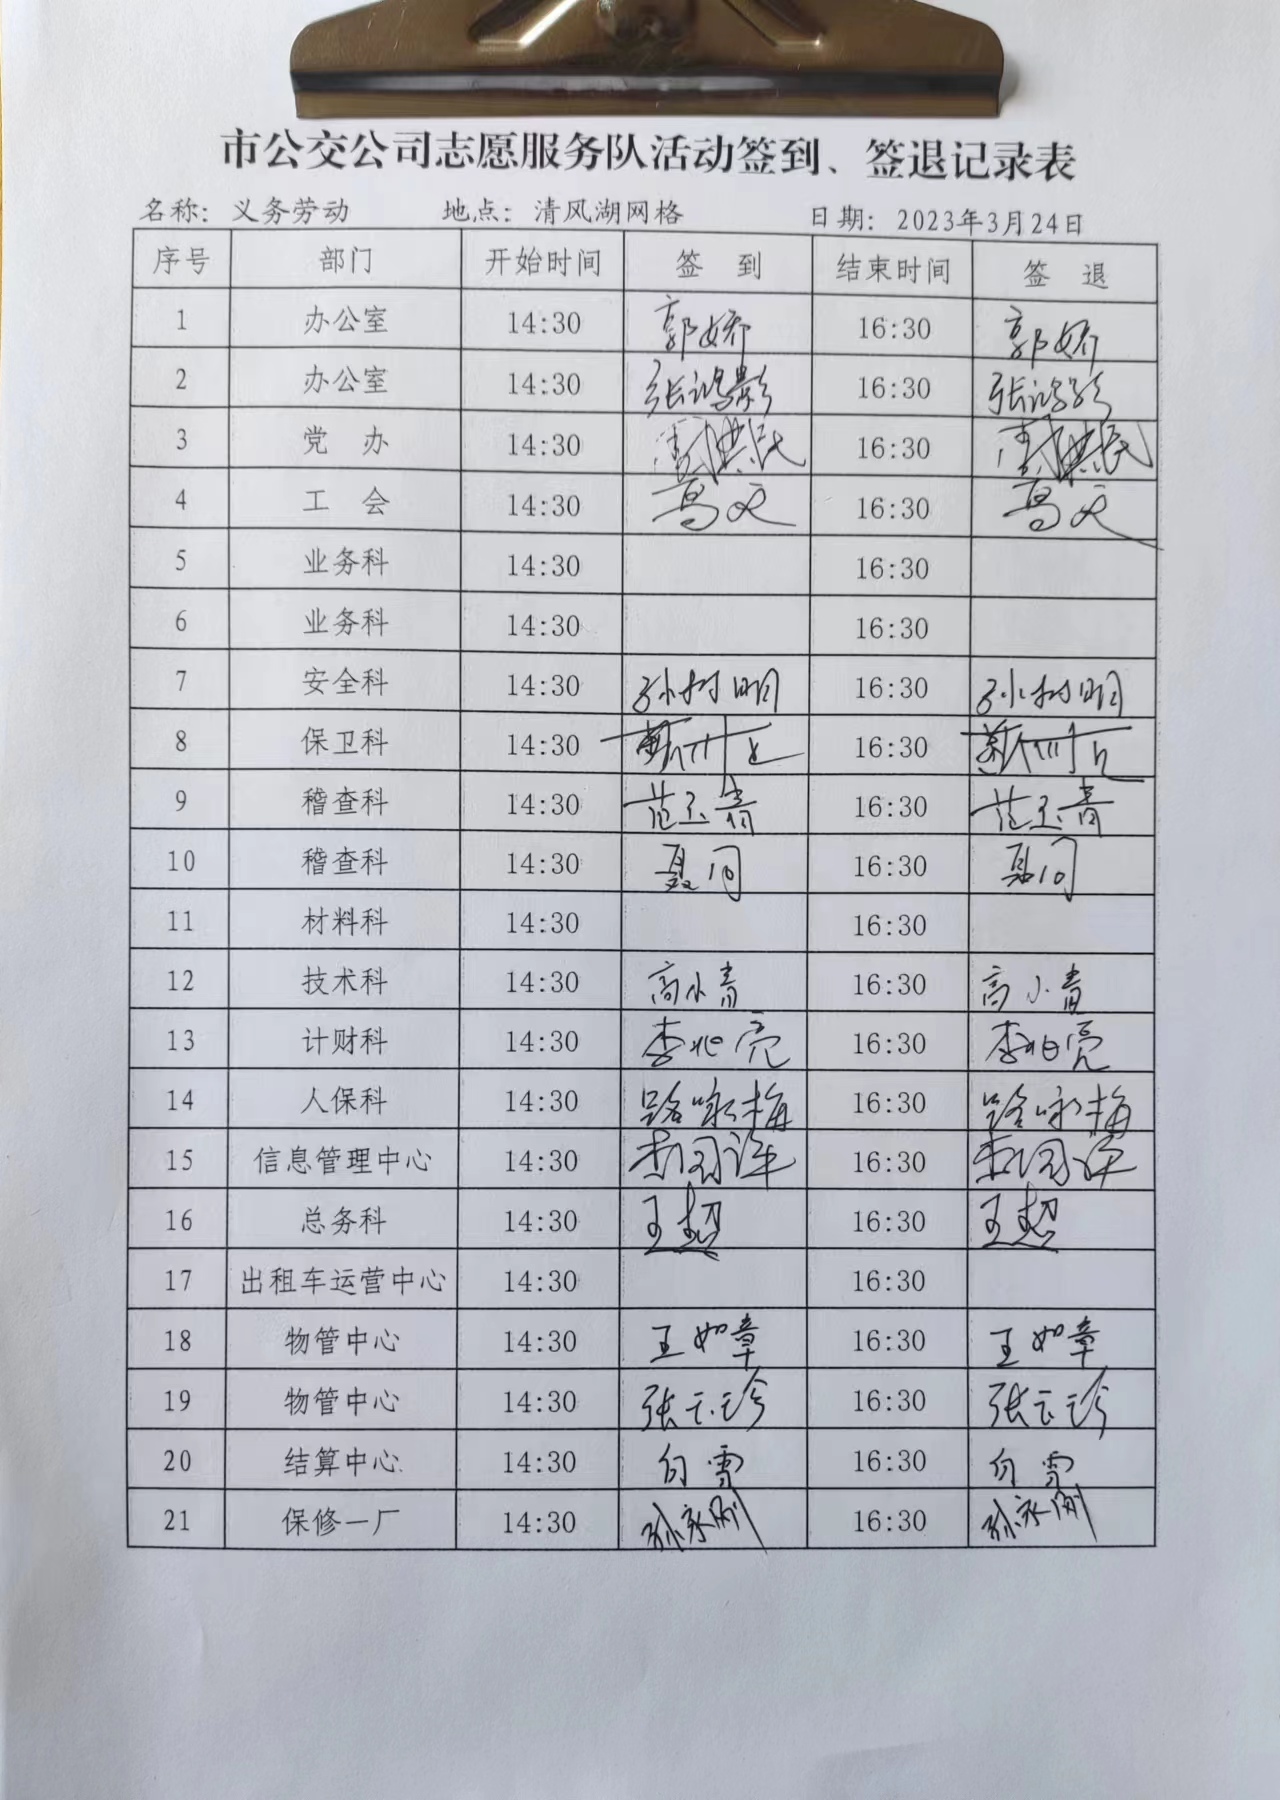 市公交公司志愿服务队活动签到、签退记录表
名称：义务劳动 地点：清风湖网格 日期：2023年3月24日
序号 部门 开始时间 签 到 结束时间 签 退
1 办公室 14:30 郭娇 16:30 郭娇
2 办公室 14:30 张鸿影 16:30 张鸿影
3 党 办 14:30 16:30
4 工 会 14:30 16:30
5 业务科 14:30 16:30
6 业务科 14:30 16:30
7 安全科 14:30 孙树明 16:30 孙树明
8 保卫科 14:30 16:30
9 稽查科 14:30 范玉青 16:30 范玉青
10 稽查科 14:30 16:30
11 材料科 14:30 16:30
12 技术科 14:30 高小青 16:30 高小青
13 计财科 14:30 李兆亮 16:30 李兆亮
14 人保科 14:30 路咏梅 16:30 路咏梅
15 信息管理中心 14:30 16:30
16 总务科 14:30 王超 16:30 王超
17 出租车运营中心 14:30 16:30
18 物管中心 14:30 王如章 16:30 王如章
19 物管中心 14:30 张云珍 16:30 张云珍
20 结算中心 14:30 白雪 16:30 白雪
21 保修一厂 14:30 孙永刚 16:30 孙永刚